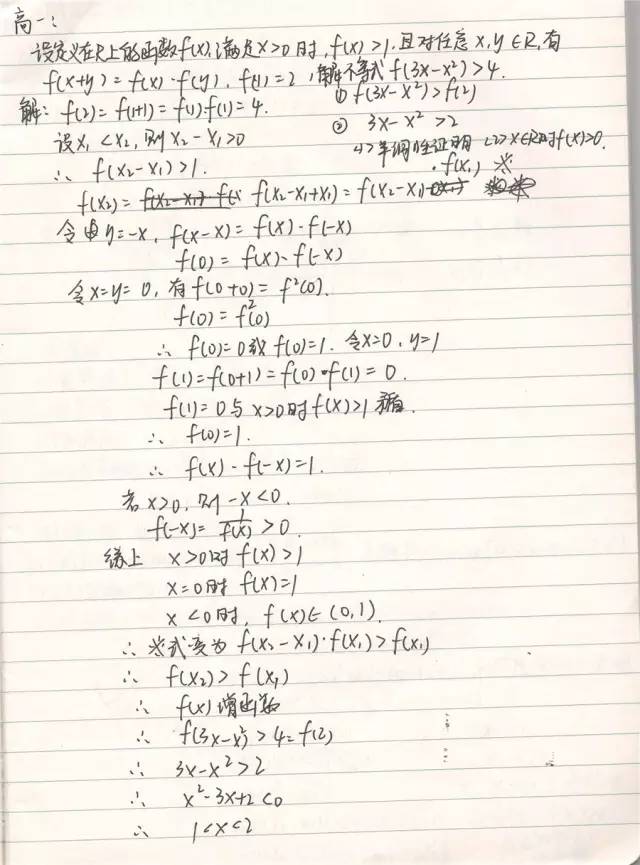 高一：
设定义在R上的函数f(x),满足x>0时,f(x)>1,且对任意x,y∈R,有
f(x+y)=f(x)·f(y),f(1)=2,解不等式f(3x-x²)>4.
解：f(2)=f(1+1)=f(1)·f(1)=4.
① f(3x-x²)>f(2)
设x₁<x₂,则x₂-x₁>0
② 3x-x²>2
<1>单调性证明 <2>x∈R时f(x)>0.
∴ f(x₂-x₁)>1.
f(x₂)= f(x₂-x₁+x₁)=f(x₂-x₁)·f(x₁) ※
令y=-x, f(x-x)=f(x)·f(-x)
f(0)=f(x)·f(-x)
令x=y=0,有f(0+0)=f²(0).
f(0)=f²(0)
∴ f(0)=0或f(0)=1. 令x=0,y=1
f(1)=f(0+1)=f(0)·f(1)=0.
f(1)=0与x>0时f(x)>1矛盾.
∴ f(0)=1.
∴ f(x)·f(-x)=1.
若x>0,则-x<0.
f(-x)=1/f(x)>0.
综上 x>0时f(x)>1
x=0时f(x)=1
x<0时,f(x)∈(0,1).
∴ ※式变为f(x₂-x₁)·f(x₁)>f(x₁)
∴ f(x₂)>f(x₁)
∴ f(x)增函数
∴ f(3x-x²)>4=f(2)
∴ 3x-x²>2
∴ x²-3x+2<0
∴ 1<x<2